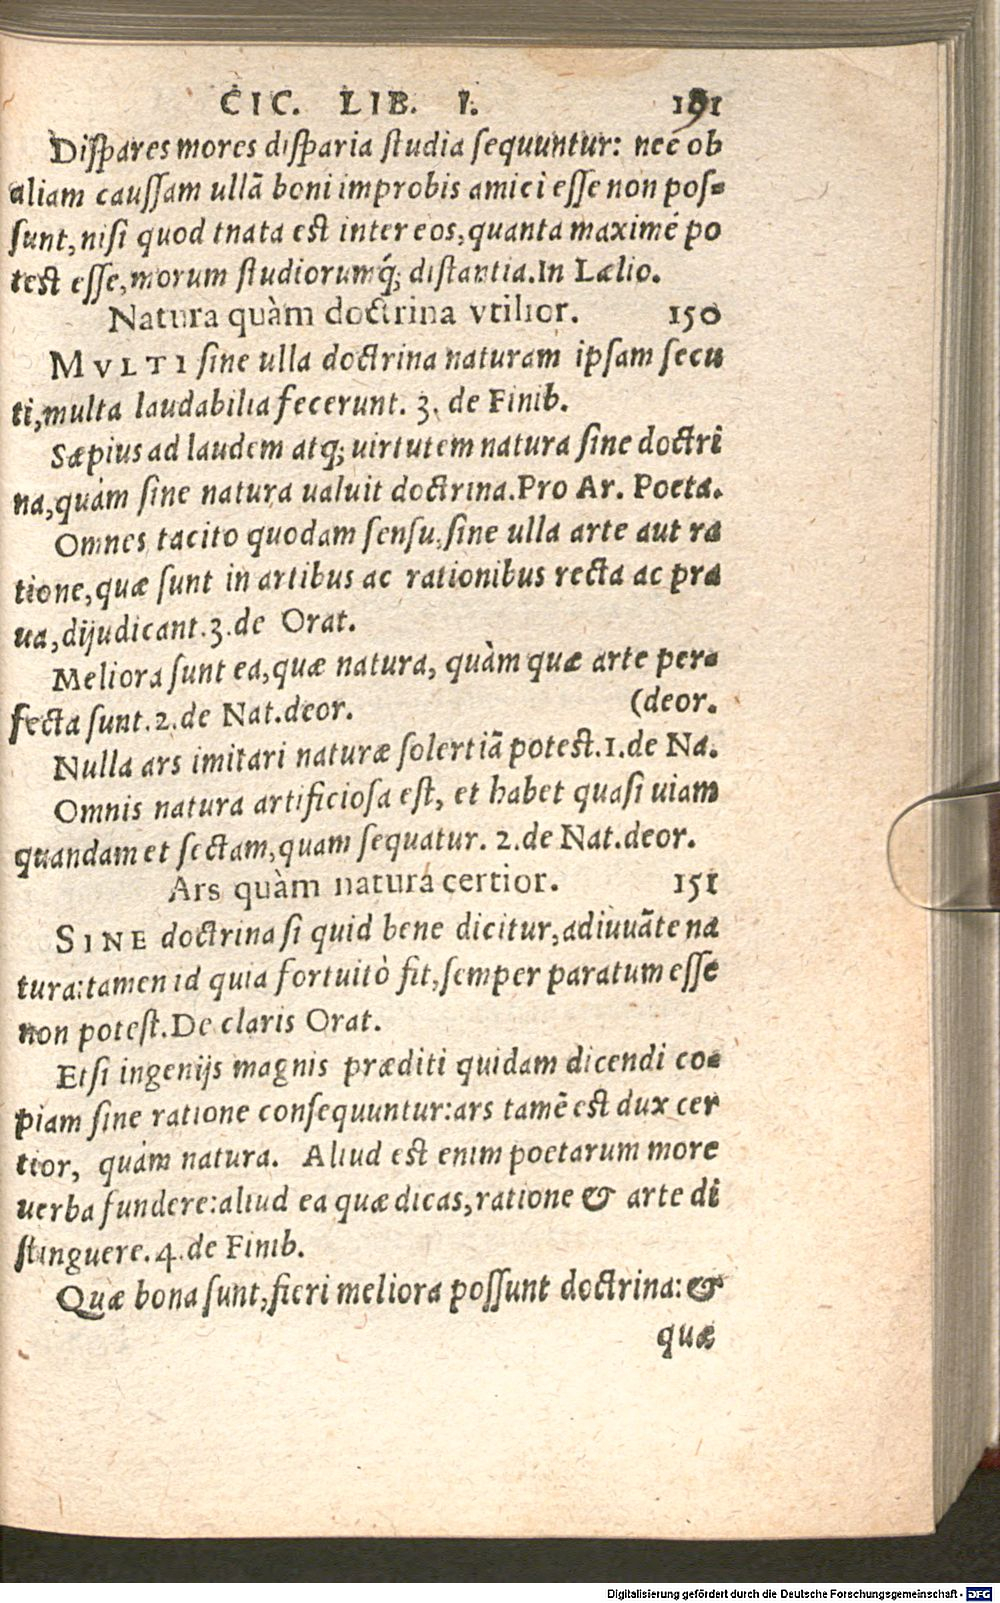 CIC. LIB. I. 191
Diſpares mores diſparia ſtudia ſequuntur: nec ob
aliam cauſſam ullā boni improbis amici eſſe non poſ-
ſunt, niſi quod tnata eſt inter eos, quanta maximè po
teſt eſſe, morum ſtudiorumq́; diſtantia. In Lælio.
Natura quàm doctrina vtilior. 150
MVLTI ſine ulla doctrina naturam ipſam ſecu
ti, multa laudabilia fecerunt. 3. de Finib.
Sæpius ad laudem atq; uirtutem natura ſine doctri
na, quàm ſine natura ualuit doctrina. Pro Ar. Poeta.
Omnes tacito quodam ſenſu, ſine ulla arte aut ra
tione, quæ ſunt in artibus ac rationibus recta ac pra
ua, dijudicant. 3. de Orat.
Meliora ſunt ea, quæ natura, quàm quæ arte per-
fecta ſunt. 2. de Nat. deor. (deor.
Nulla ars imitari naturæ ſolertiā poteſt. 1. de Na.
Omnis natura artificioſa eſt, et habet quaſi uiam
quandam et ſectam, quam ſequatur. 2. de Nat. deor.
Ars quàm natura certior. 151
SINE doctrina ſi quid bene dicitur, adiuuāte na
tura: tamen id quia fortuitò fit, ſemper paratum eſſe
non poteſt. De claris Orat.
Etſi ingenijs magnis præditi quidam dicendi co-
piam ſine ratione conſequuntur: ars tamē eſt dux cer
tior, quàm natura. Aliud eſt enim poetarum more
uerba fundere: aliud ea quæ dicas, ratione & arte di
ſtinguere. 4. de Finib.
Quæ bona ſunt, fieri meliora poſſunt doctrina: &
quæ
Digitalisierung gefördert durch die Deutsche Forschungsgemeinschaft - DFG